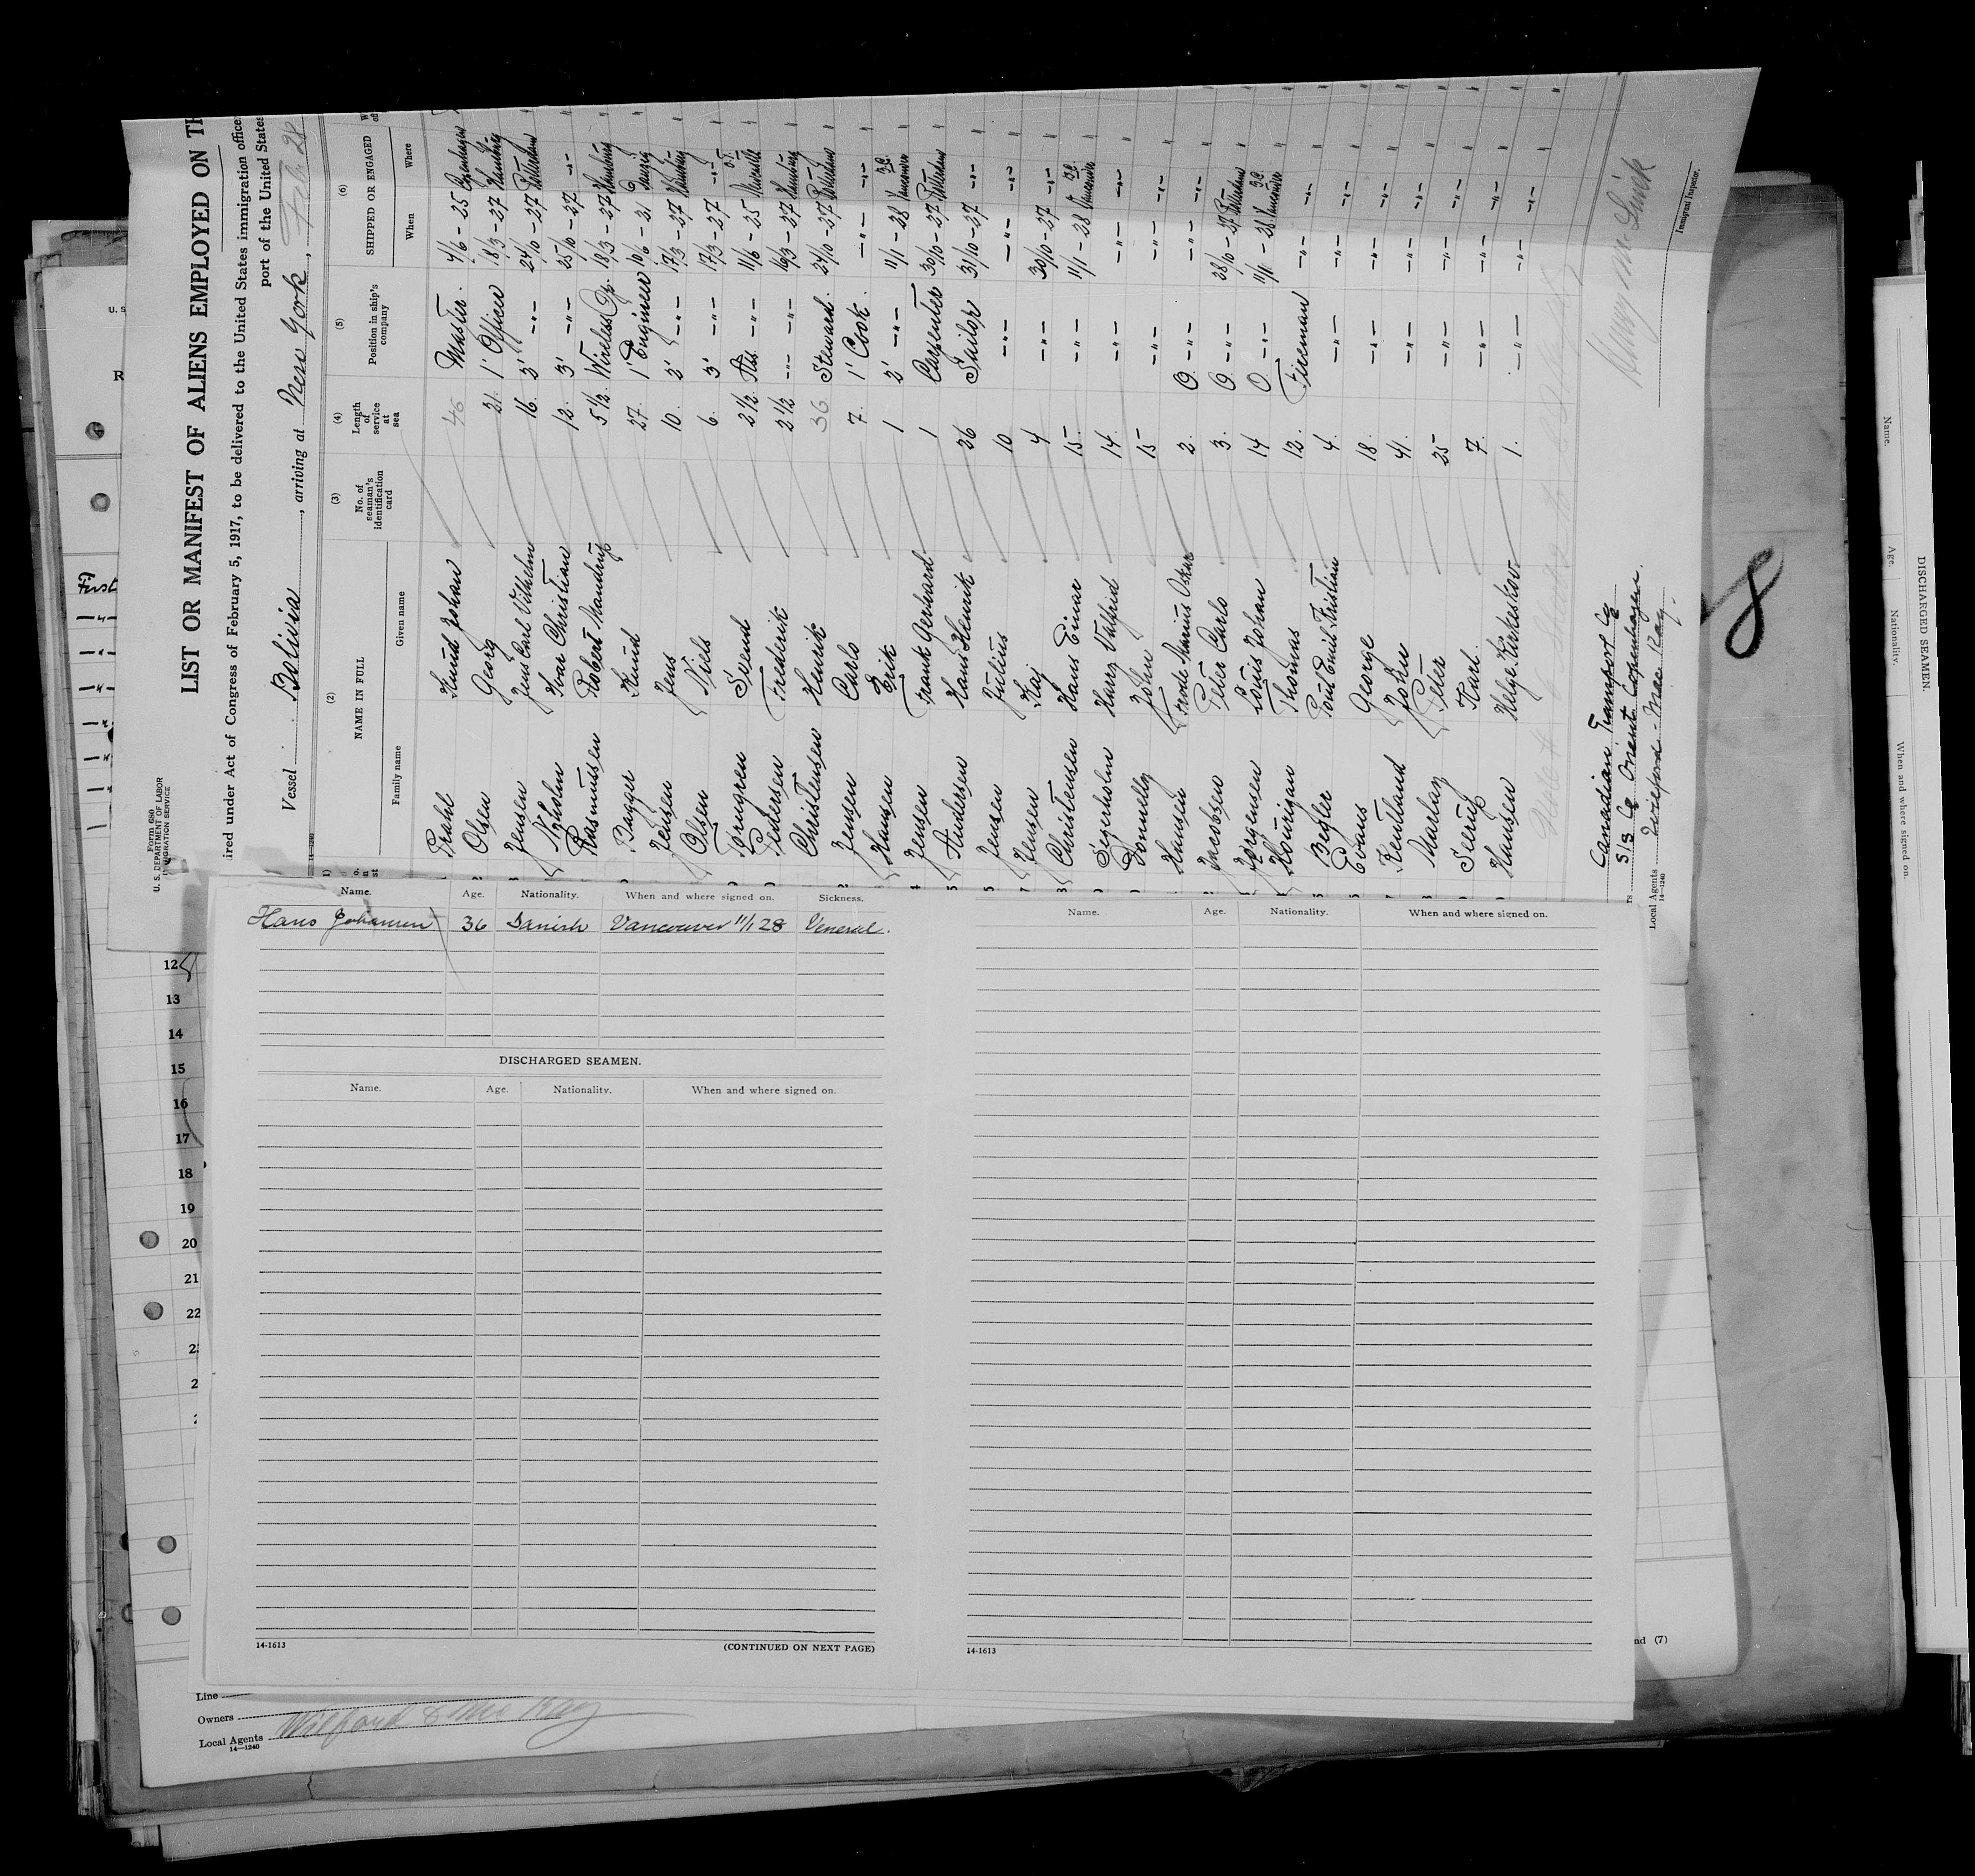 Form 680
U. S. DEPARTMENT OF LABOR
IMMIGRATION SERVICE
LIST OR MANIFEST OF ALIENS EMPLOYED ON TH
ired under Act of Congress of February 5, 1917, to be delivered to the United States immigration office
port of the United States
Vessel Bolivia, arriving at New York, Feb. 28
14-1240
(2) (3) (4) (5) (6)
NAME IN FULL No. of seaman's identification card Length of service at sea Position in ship's company SHIPPED OR ENGAGED
Family name Given name When Where
Prahl Knud Johan 46 Master 4/6 - 25 Copenhagen
Olsen Georg 21. 1' Officer 18/3 - 27 Hamburg
Jensen Jens Carl Vilhelm 16. 2' -"- 24/10 - 27 Rotterdam
Nyholm Ivar Christian 12. 3' -"- 25/10 - 27 -"-
Rasmussen Robert Mandrup 5 1/2. Wireless Op. 18/3 - 27 Hamburg
Bagger Knud 27. 1' Engineer 10/6 - 21 Danzig
Jensen Jens 10. 2' -"- 17/3 - 27 Hamburg
Olsen Niels 6. 3' -"- 17/3 - 27 -"-
Svend 2 1/2. Ass. 11/6 - 25
Pedersen Frederik 2 1/2 -"- 16/3 - 27 Hamburg
Christensen Henrik 36. Steward. 24/10 - 27 Rotterdam
Jensen Carlo 7. 1' Cook. -"- -"-
Hansen Erik 1 2' -"- 11/1 - 28 Vancouver
Jensen Frank Gerhard 1 Carpenter 30/10 - 27 Rotterdam
Andersen Hans Henrik 26 Sailor 31/10 - 27 -"-
Jensen Julius 10 -"- -"- -"-
Jensen Kaj 4 -"- 30/10 - 27 -"-
Christensen Hans Einar 15. -"- 11/1 - 28 Vancouver
Segerholm Harry Valfrid 14. -"- -"- -"-
Donnelly John 15 -"- -"- -"-
Hansen Frode Marius Oskar 2. O. -"- -"- -"-
Jacobsen Peter Carlo 3. O. -"- 28/10 - 27 Rotterdam
Jørgensen Louis Johan 14 O. -"- 11/1 - 28 Vancouver
Hourigan Thomas 12. Fireman -"- -"-
Begler Poul Emil Kristian 4. -"- -"- -"-
Evans George 18. -"- -"- -"-
Kentland John 41. -"- -"- -"-
Marlay Peter 25 -"- -"- -"-
Seerup Karl. 7. -"- -"- -"-
Hansen Helge Kirkeskov 1. -"- -"- -"-
Canadian Transport Co
S/S Co Orient Copenhagen.
Local Agents Wilford & Mac Kay.
14-1240
Immigrant Inspector.
8
Name. Age. Nationality. When and where signed on. Sickness.
Hans Johansen 36 Danish Vancouver 11/1 28 Veneral.
DISCHARGED SEAMEN.
Name. Age. Nationality. When and where signed on.
14-1613 (CONTINUED ON NEXT PAGE)
Name. Age. Nationality. When and where signed on.
14-1613
First
12
13
14
15
16
17
18
19
20
21
22
nd (7)
Line
Owners
Local Agents Wilford & Mc Kay
14-1240
DISCHARGED SEAMEN.
Name. Age. Nationality. When and where signed on.